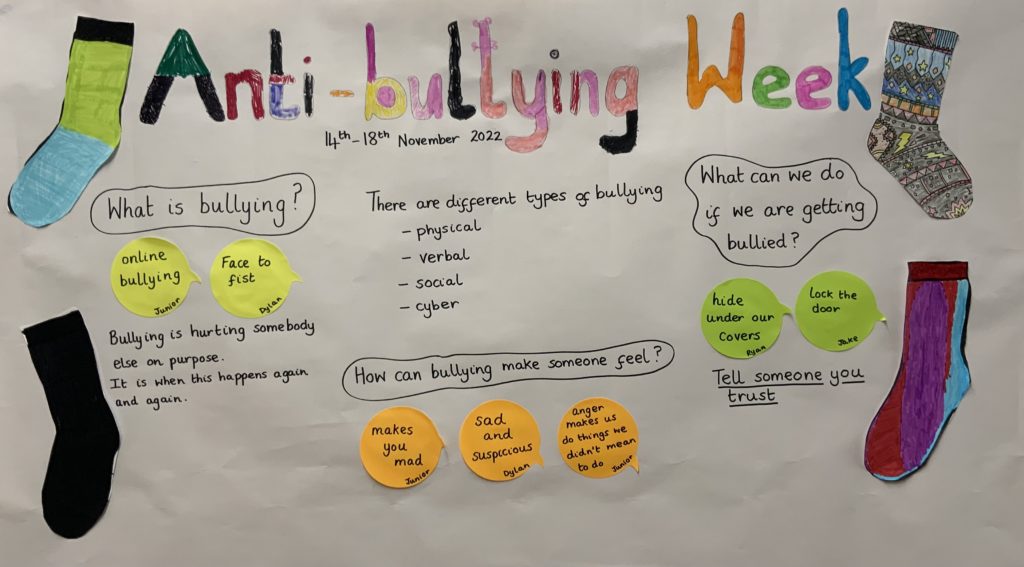 Anti-bullying Week
14th-18th November 2022
What is bullying?
online
bullying
Junior
Face to
fist
Dylan
Bullying is hurting somebody
else on purpose.
It is when this happens again
and again.
There are different types of bullying
- physical
- verbal
- social
- cyber
How can bullying make someone feel?
makes
you
mad
Junior
sad
and
suspiccious
Dylan
anger
makes us
do things we
didn't mean
to do
Junior
What can we do
if we are getting
bullied?
hide
under our
covers
Ryan
lock the
door
Jake
Tell someone you
trust